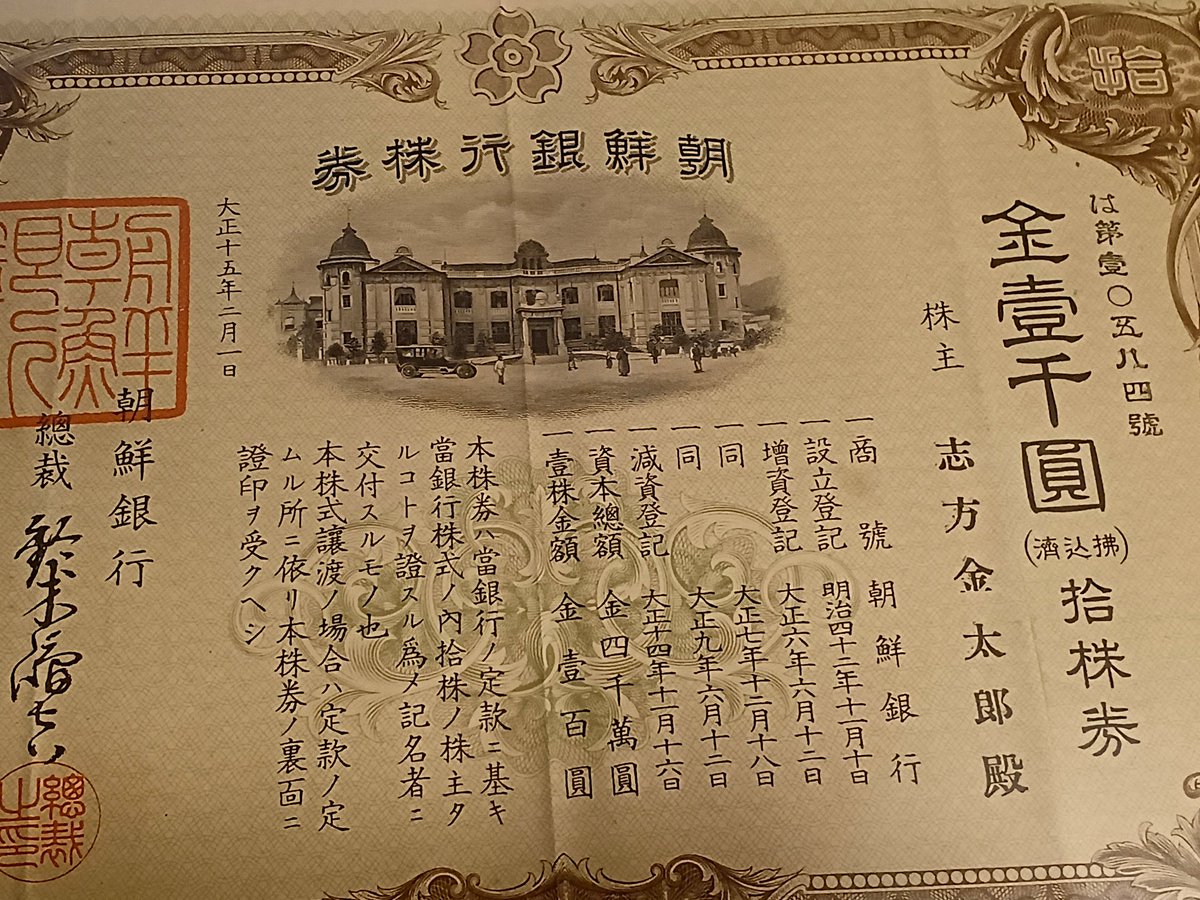 拾
朝鮮銀行株券
は第壹〇五八四號
金壹千圓(拂込濟)拾株券
株主 志方金太郎殿
一商號 朝鮮銀行
一設立登記 明治四十二年十一月十日
一增資登記 大正六年六月十二日
一同 大正七年十二月十八日
一同 大正九年六月十二日
一減資登記 大正十四年十一月十六日
一資本總額 金四千萬圓
一壹株金額 金壹百圓
本株券ハ當銀行ノ定款ニ基キ
當銀行株式ノ內拾株ノ株主タ
ルコトヲ證スル爲メ記名者ニ
交付スルモノ也
本株式讓渡ノ場合ハ定款ノ定
ムル所ニ依リ本株券ノ裏面ニ
證印ヲ受クヘシ
大正十五年二月一日
朝鮮銀行
總裁
總裁之印